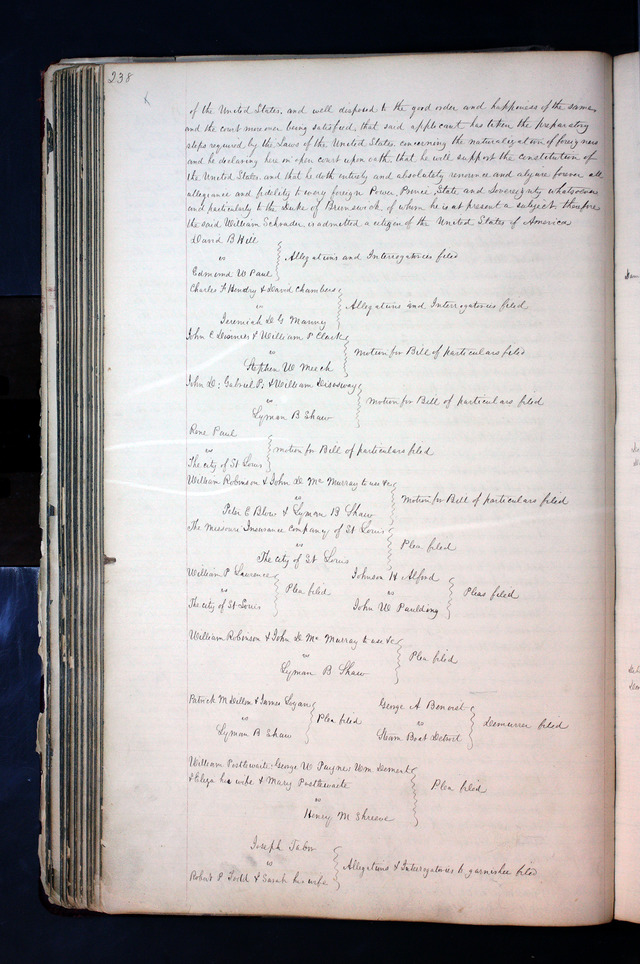 238
of the United States, and well disposed to the good order and happiness of the same
and the court moreover being satisfied, that said applicant has taken the preparatory
steps required by the Laws of the United States, concerning the naturalization of foreigners
and he declaring here in open court upon oath, that he will support the constitution of
the United States, and that he doth entirely and absolutely renounce and abjure forever all
allegiance and fidelity to every foreign Power, Prince, State and Sovereignty whatsoever
and particularly to the Duke of Brunswick of whom he is at present a subject, therefore
the said William Schrader, is admitted a citizen of the United States of America
David B Hill
vs
Allegations and Interrogatories filed
Edmond W Paul
Charles F Hendry & David Chambers
vs
Allegations and Interrogatories filed
Jeremiah D G Manny
John C & William P Clark
vs
Motion for Bill of particulars filed
Stephen W Meech
John D: Gabriel P: & William Disosway
vs
Motion for Bill of particulars filed
Lyman B Shaw
Rene Paul
vs
Motion for Bill of particulars filed
The city of St Louis
William Robinson & John D McMurray to use &c
vs
Motion for Bill of particulars filed
Peter E Blow & Lyman B Shaw
The Missouri Insurance Company of St Louis
vs
Plea filed
The city of St Louis
William P Lawrence
vs
Plea filed
The city of St Louis
Johnson H Alford
vs
Pleas filed
John W Paulding
William Robinson & John D McMurray to use &c
vs
Plea filed
Lyman B Shaw
Patrick M Dillon & James Logan
vs
Plea filed
Lyman B Shaw
George A Benoist
vs
Demurrer filed
Steam Boat Detroit
William Postlewaite: George W Payne: Wm Dement
& Eliza his wife & Mary Postlewaite
Plea filed
vs
Henry M Shreeve
Joseph Tabor
vs
Allegations & Interrogatories to garnishee filed
Robert P Todd & Sarah his wife